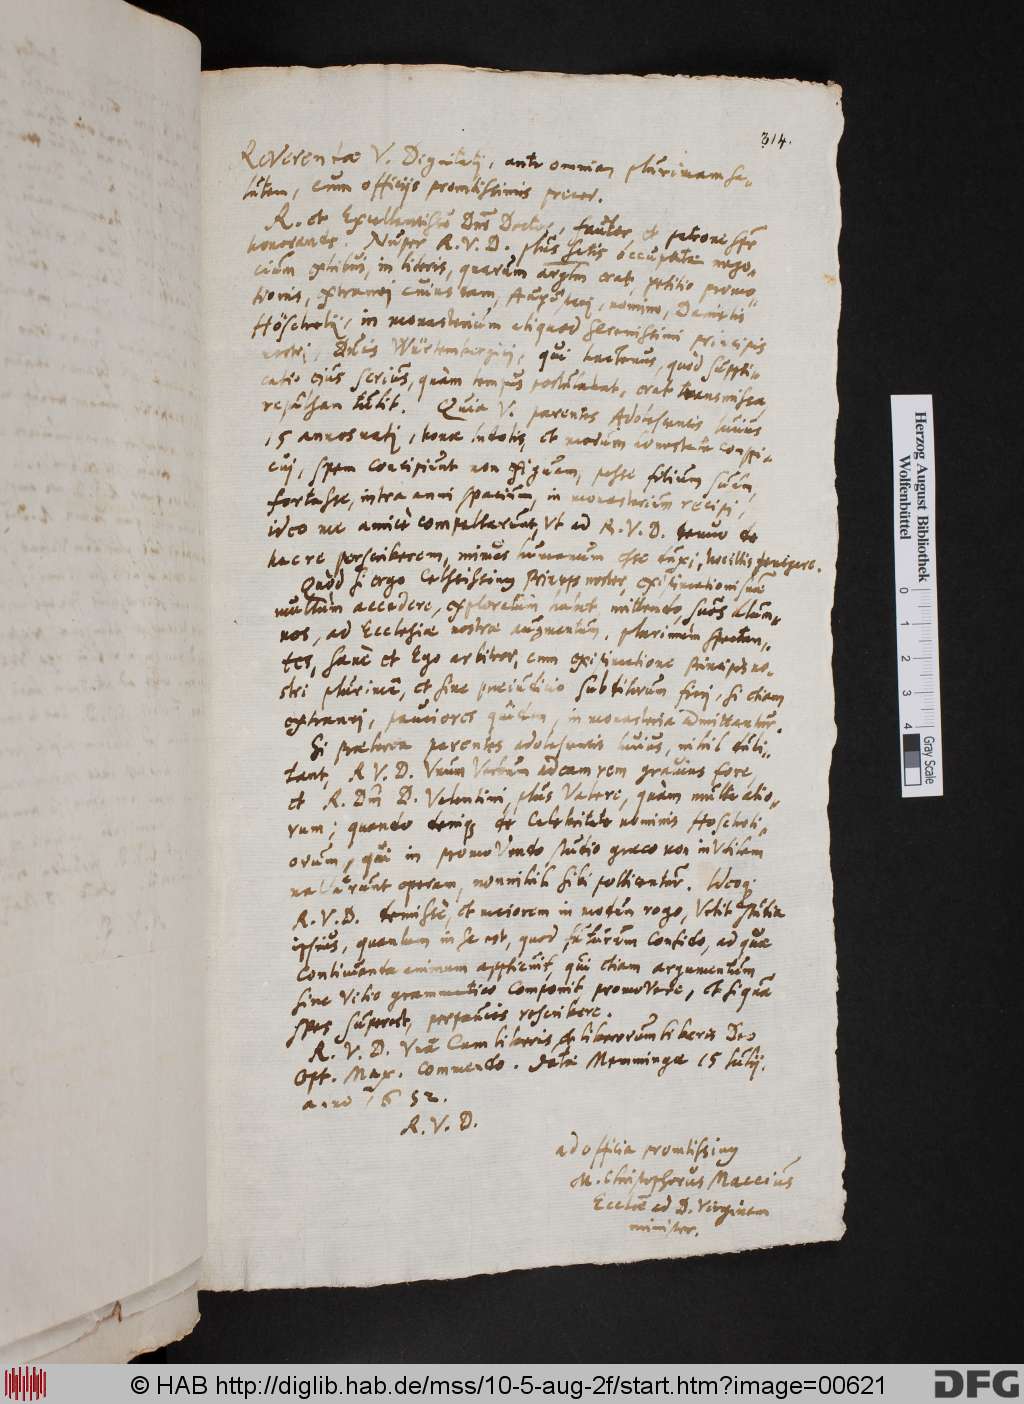 314.
Reverendæ V. Dignitatj, ante omnia plurimam sa-
lutem, cum officijs promtissimis precor.
R. et Excellentissime Dne Doctor, fautor et patrone
honorande. Nuper R. V. D. plus satis occupatæ nego-
cium exhibui, in literis, quarum argtm erat, petitio promo-
tionis, extranej cuiusdam, Augustanj, nomine, Danielis
Höschelij, in monasterium aliquod Serenissimi principis
nostri, Ducis Würtembergicj, qui hactenus, quod suppli-
catio eius serius, quàm tempus postulabat, erat transmissa
repulsam tulit. Quia V. parentes Adolescentis huius
15 annos natj, bonæ indolis, et morum honestate conspi-
cuj, spem concipiunt non exiguam, posse filium suum,
fortasse, intra anni spacium, in monasterium recipi,
ideo me amicè compellarunt, Vt ad R. V. D. denuo de
hac re perscriberem, minus humanum esse duxi, hoc illis denegare.
Quòd si ergo Celsissimus Princeps noster, existimationi suæ
multum accedere, exploratum habet, mittendo, suos alum-
nos, ad Ecclesiæ nostræ augmentum, plurimum spectan-
tes, sanè et Ego arbitror, cum existimatione principis no-
stri plurima, et sine præiudicio subditorum fieri, si etiam
extranej, pauciores quidem, in monasteria admittantur.
Si præterea parentes adolescentis huius, nihil dubi-
tant, R. V. D. Vnum Verbum ad eam rem gravius fore,
et R. Dn. D. Valentini, plus Valere, quàm multa alio-
rum; quando deniq; de Celebritate nominis Höscheli-
orum, qui in promovendo studio græco non inVtilem
naVarunt operam, nonnihil sibi pollicentur. Idcoq;
R. V. D. demissè, et maiorem in modum rogo, Velit studia
ipsius, quantum in se est, quod futurum confido, ad quæ
continuanda animum applicuit, qui etiam argumentum
sine vitio grammatico componit promovere, et siqua
spes superest, perpaucis rescribere.
R. V. D. Vnà Cum liberis et liberorum liberis Deo
Opt. Max. commendo. Data Memmingæ 15 Julij.
anno 1652.
R. V. D.
ad officia promtissimus
M. Christophorus Maccius
Ecclæ ad D. Virginem
minister.
Herzog August Bibliothek
Wolfenbüttel
0 1 2 3 4
Gray Scale
© HAB http://diglib.hab.de/mss/10-5-aug-2f/start.htm?image=00621
DFG